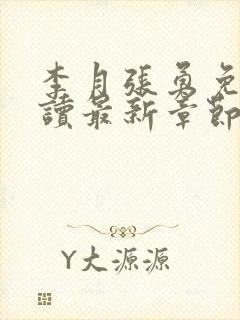 李月張勇免
讀最新章節
Y大源源